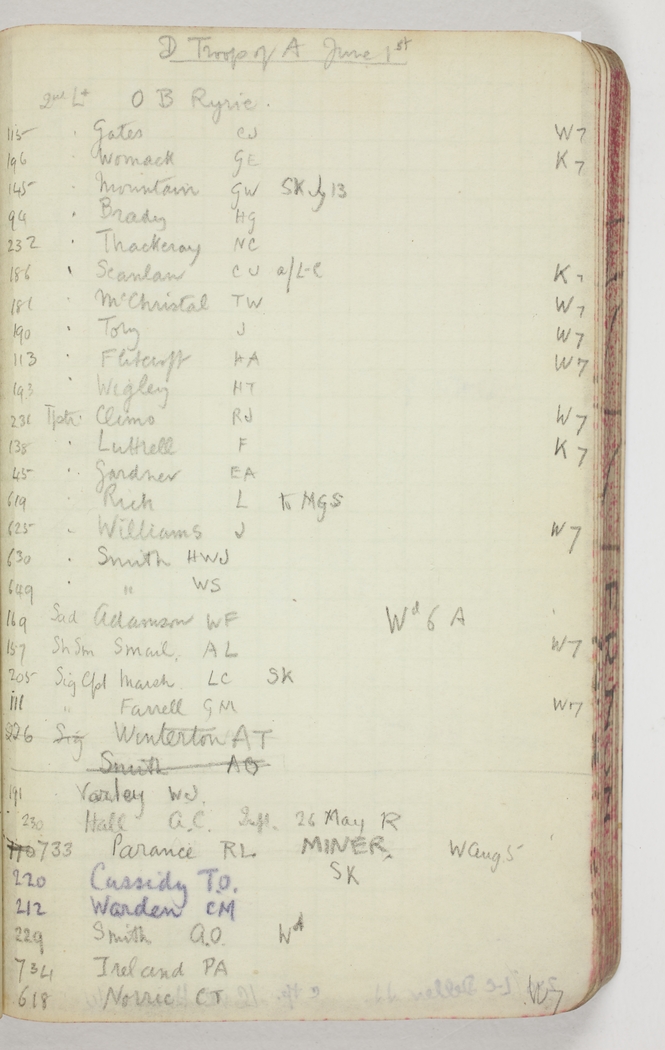 D Troop of A June 1st
2nd Lt O B Ryrie.
115 · Gates CJ W7
196 · Womack GE K7
145 · Mountain GW SK Jy 13
94 · Brady HG
232 · Thackeray NC
186 · Scanlan CJ a/L-C K7
181 · McChristal TW W7
190 · Tory J W7
113 · Flitcroft HA W7
193 · Wigley HT
231 Tptr. Climo RJ W7
138 · Luttrell F K7
45 · Gardner EA
619 · Rich L to MGS
625 · Williams J W7
630 · Smith HWJ
649 · " WS
169 Sad Adamson WF Wd 6 A
157 ShSm Smail, AL W7
205 Sig Cpl March LC SK
111 " Farrell GM W7
226 Sig Winterton AT
Smith AB
191 Varley WJ.
230 Hall A.C. 26 May R
733 Parance RL MINER WAug5
220 Cassidy T.O. SK
212 Warden CM
229 Smith A.O. Wd
734 Ireland PA
618 Norrie CT W7